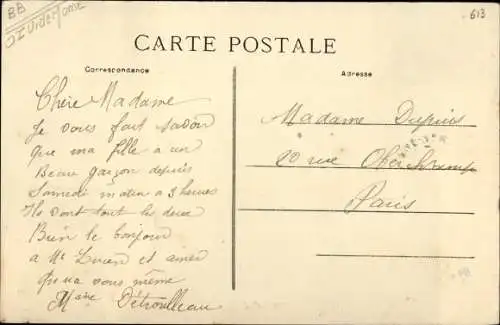 BB
613
CARTE POSTALE
Correspondance
Adresse
Chère Madame
Je vous fait savoir
que ma fille a un
Beau garçon depuis
Samedi matin a 3 heures
Ils vont tout les deux
Bien le bonjour
a Mr Lucien et ainsi
qu'a vous même
Détroulleau
Madame Dupuis
20 rue Oberkampf
Paris